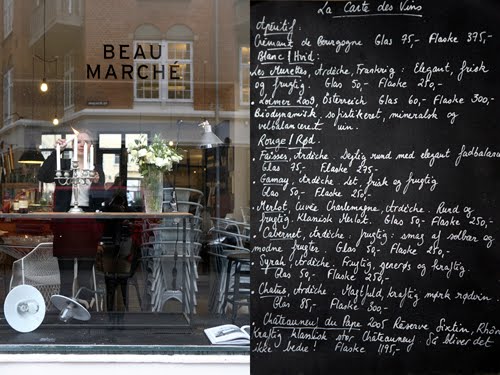 BEAU
MARCHÉ
La Carte des Vins
Apéritif:
Crémant de Bourgogne Glas 75,- Flaske 375,-
Blanc / Hvid:
Les Murettes, Ardèche, Frankrig: Elegant, frisk
og frugtig. Glas 50,- Flaske 250,-
Sommer 2009, Österreich Glas 60,- Flaske 300,-
Biodynamisk, sofistikeret, mineralsk og
velbalanceret vin.
Rouge / Rød.
Faïsses, Ardèche. Dejlig rund med elegant fadbalance
Glas 75,- Flaske 275,-
Gamay, Ardèche. Let, frisk og frugtig
Glas 50,- Flaske 250,-
Merlot, Cuvée Charlemagne, Ardèche. Rund og
frugtig. Klassisk Merlot. Glas 50,- Flaske 250,-
Cabernet, Ardèche. frugtig. smag af solbær og
modne frugter. Glas 50,- Flaske 250,-
Syrah, Ardèche. Frugtig, generøs og kraftig.
Glas 50,- Flaske 250,-
Chatus, Ardèche. Magtfuld, kraftig mørk rødvin
Glas 85,- Flaske 300,-
Châteauneuf du Pape 2005 Réserve Sixtine, Rhône
Kraftig klassisk stor Châteauneuf. Så bliver det
ikke bedre! Flaske 1195,-